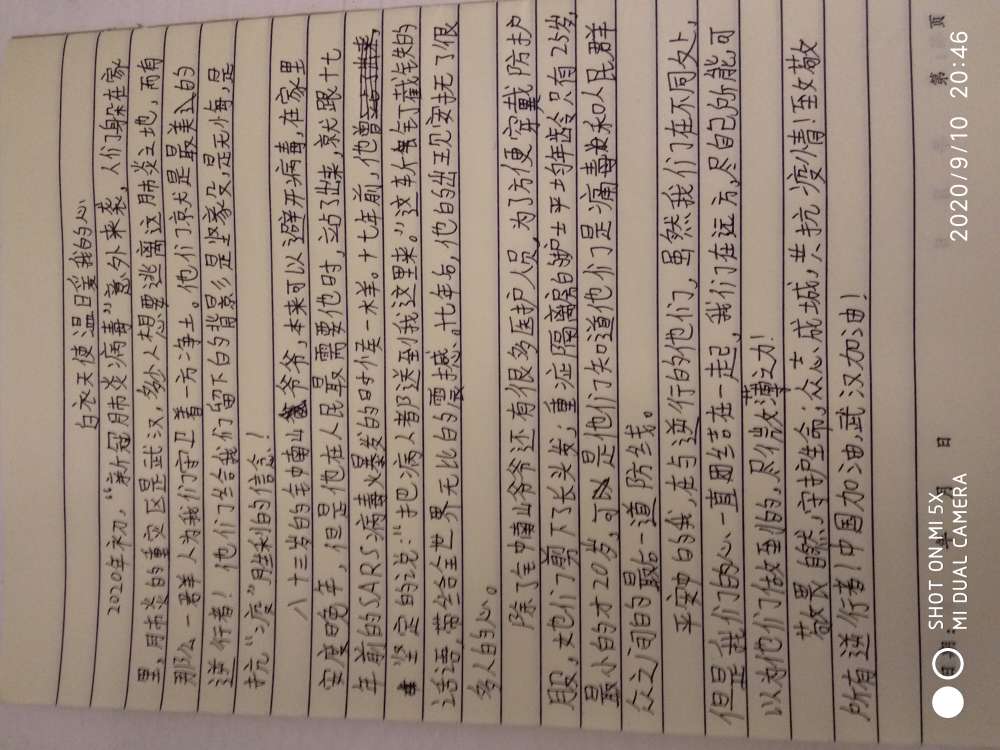 白衣天使温日爱我的心
2020年初，“新冠肺炎病毒”意外来袭，人们躲在家
里，肺炎的重灾区是武汉，多少人想要逃离这肺炎之地，而有
那么一君羊人为我们守卫着一方净土。他们京尤是最美的
逆行者！他们给我们留下的背影是坚毅，是无悔，是
抗“疫”胜利的信念！
八十三岁的钟南山爷爷，本来可以避开病毒，在家里
安度晚年，但是他在人民最需要他时，站了出来，就跟十七
年前的SARS病毒火暴发的时候一木羊。十七年前，他曾
坚定的说：“把病人都送到我这里来。”这斩钉截铁的
话语，带给全世界无比的震撼。十七年后，他的出现安抚了很
多人的心。
除了钟南山爷爷还有很多医护人员，为了方便穿戴防护
服，她们剪下了长头发；重症隔离的护士平均年龄只有25岁，
最小的才20岁，可是他们知道他们是病毒和人民群
众之间的最后一道防线。
平安的我，在与逆行的他们，虽然我们在不同处，
但是我们的心一直团结在一起，我们在远方，尽自己所能可
以为他们做到的，尽微薄之力！
敬畏自然，守护生命；众志成城，共抗疫情！致敬
所有逆行者！中国加油，武汉加油！
第 页
年 月 日
SHOT ON MI 5X
MI DUAL CAMERA
2020/9/10 20:46